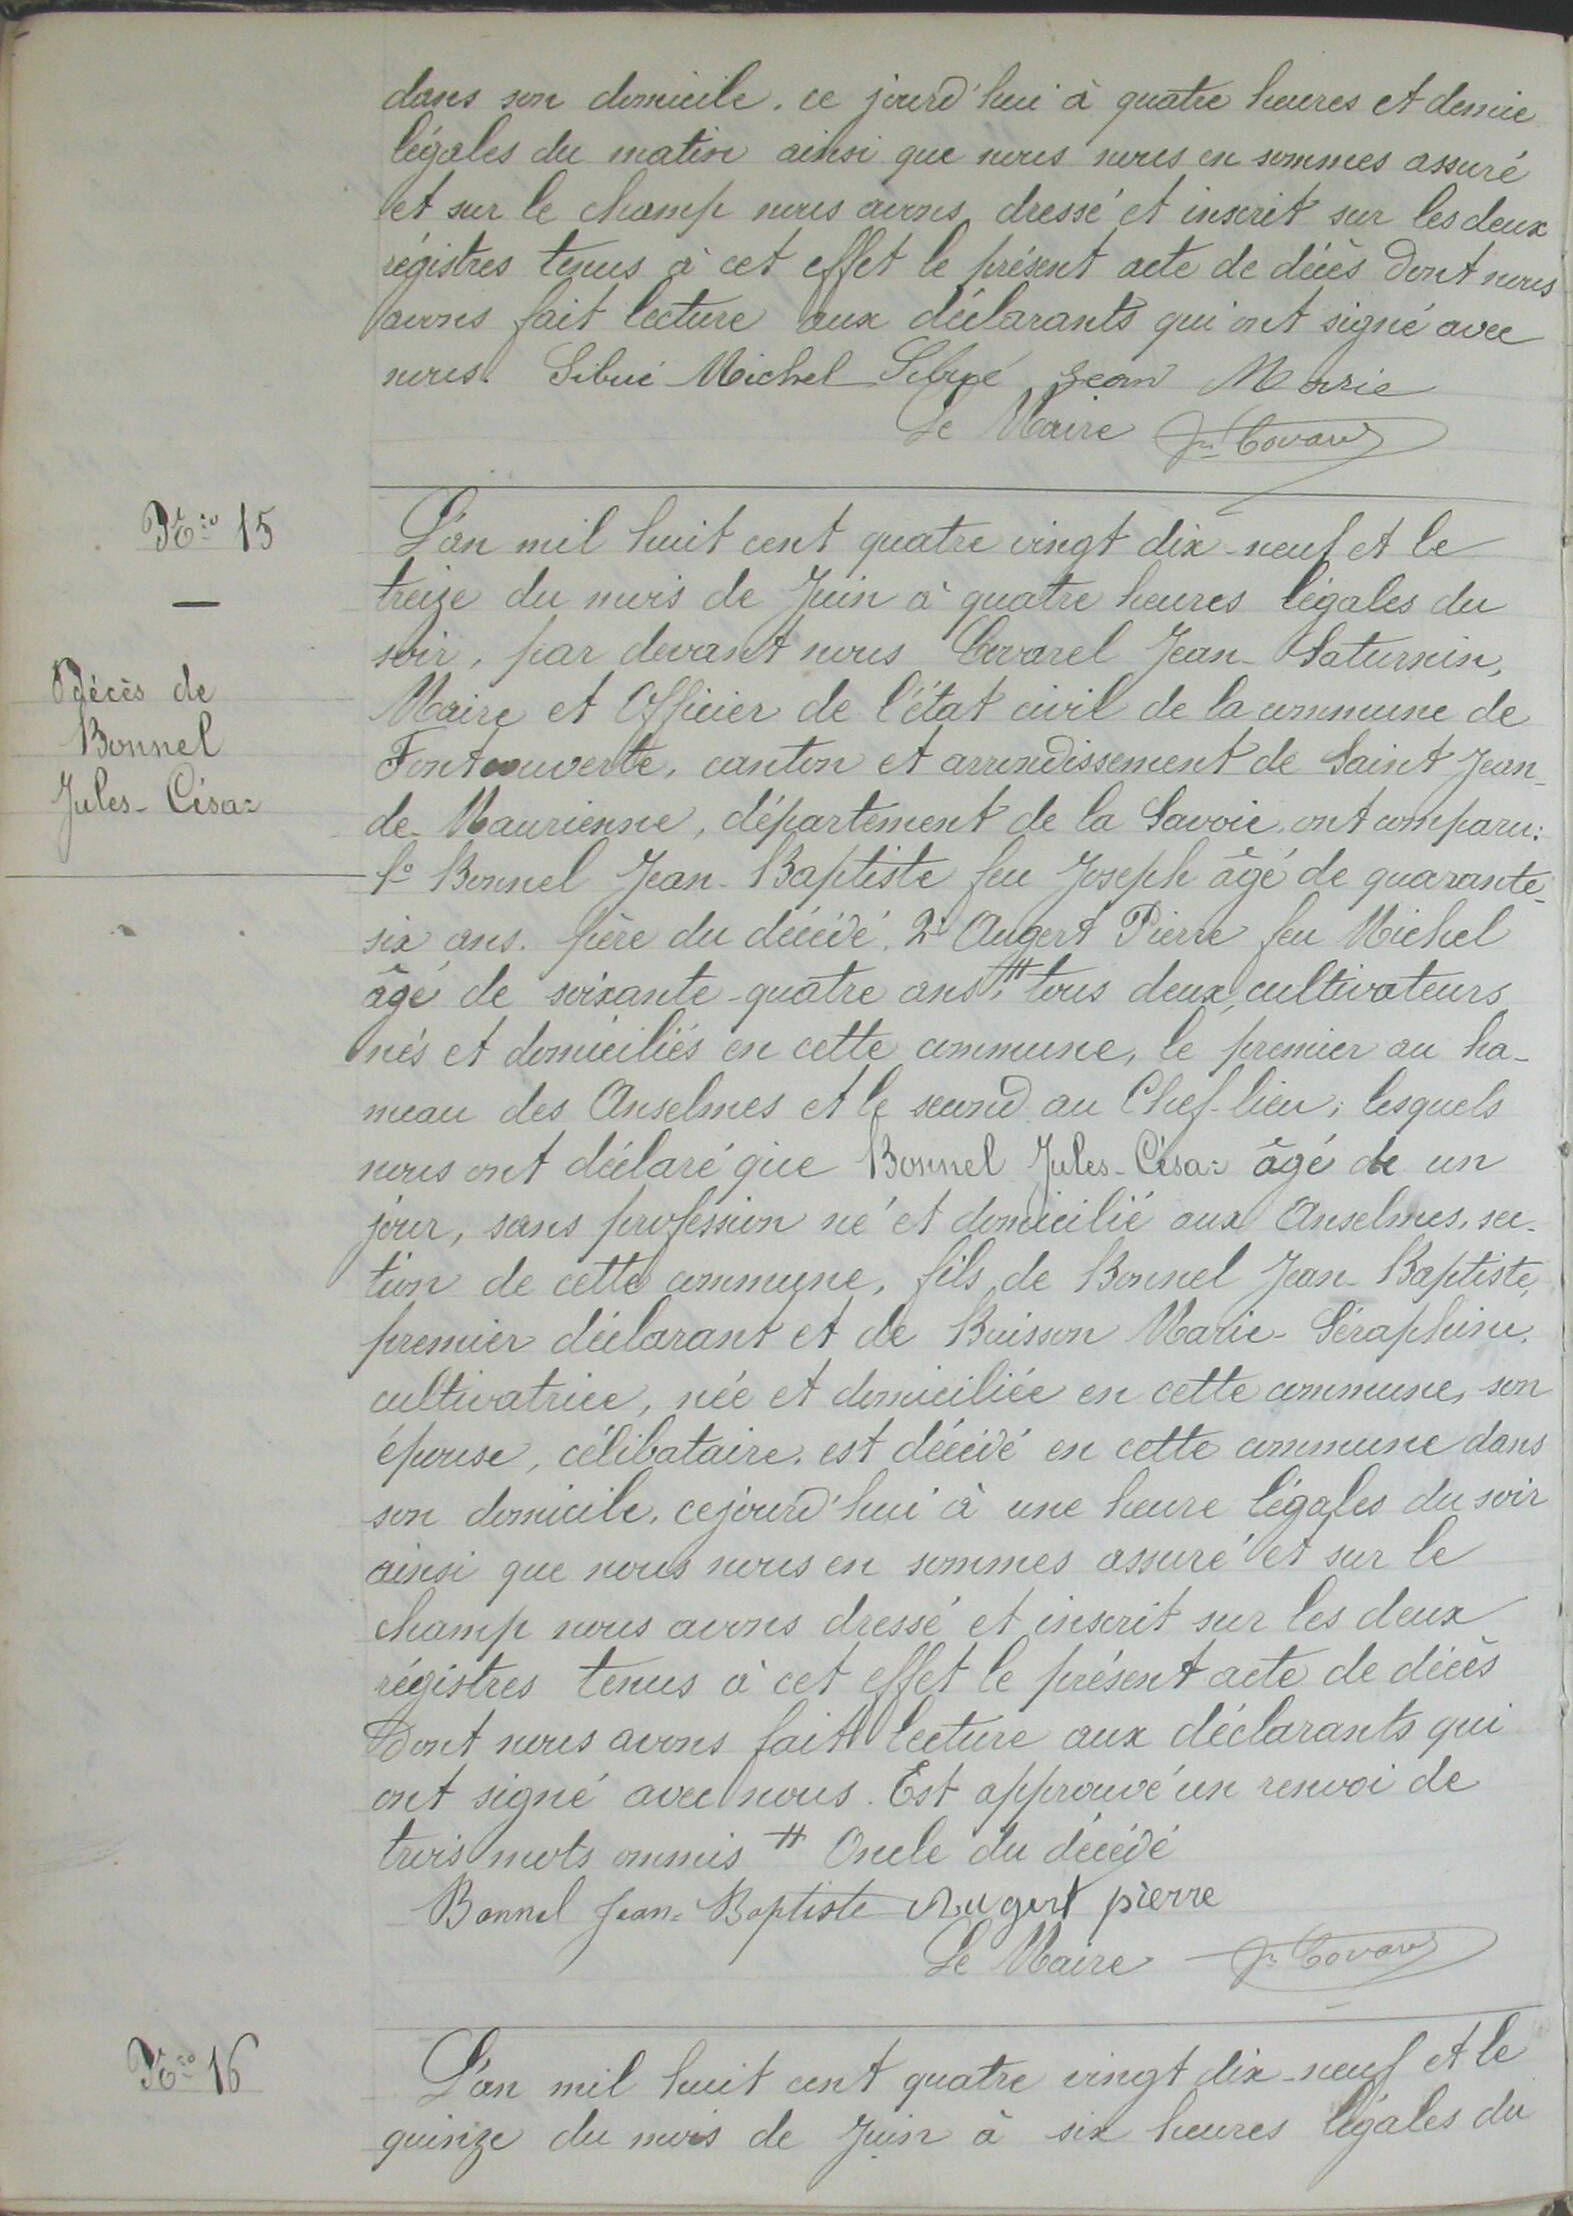 dans son domicile. ce jourd'hui à quatre heures et demie
légales du matin ainsi que nous nous en sommes assuré
et sur le champ nous avons dressé et inscrit sur les deux
régistres tenus à cet effet le présent acte de décès dont nous
avons fait lecture aux déclarants qui ont signé avec
nous. Sibué Michel Sibué Jean Marie
Le Maire
N.ro 15
Décès de
Bonnel
Jules-César
L'an mil huit cent quatre vingt dix-neuf et le
treize du mois de Juin à quatre heures légales du
soir, par devant nous Covarel Jean-Saturnin,
Maire et Officier de l'état civil de la commune de
Fontcouverte, canton et arrondissement de Saint Jean-
de-Maurienne, département de la Savoie, ont comparu:
1º Bonnel Jean-Baptiste feu Joseph âgé de quarante-
six ans. père du décédé. 2º Augert Pierre feu Michel
âgé de soixante-quatre ans,# tous deux, cultivateurs
nés et domiciliés en cette commune, le premier au ha-
meau des Anselmes et le second au Chef-lieu; lesquels
nous ont déclaré que Bonnel Jules-César âgé de un
jour, sans profession né et domicilié aux Anselmes, sec-
tion de cette commune, fils de Bonnel Jean-Baptiste,
premier déclarant et de Buisson Marie-Séraphine,
cultivatrice, née et domiciliée en cette commune, son
épouse, célibataire, est décédé en cette commune dans
son domicile, cejourd'hui à une heure légales du soir
ainsi que nous nous en sommes assuré et sur le
champ nous avons dressé et inscrit sur les deux
régistres tenus à cet effet le présent acte de décès
dont nous avons fait lecture aux déclarants qui
ont signé avec nous. Est approuvé un renvoi de
trois mots ommis # Oncle du décédé
Bonnel Jean-Baptiste Augert pierre
Le Maire
N.ro 16
L'an mil huit cent quatre vingt dix-neuf et le
quinze du mois de Juin à six heures légales du